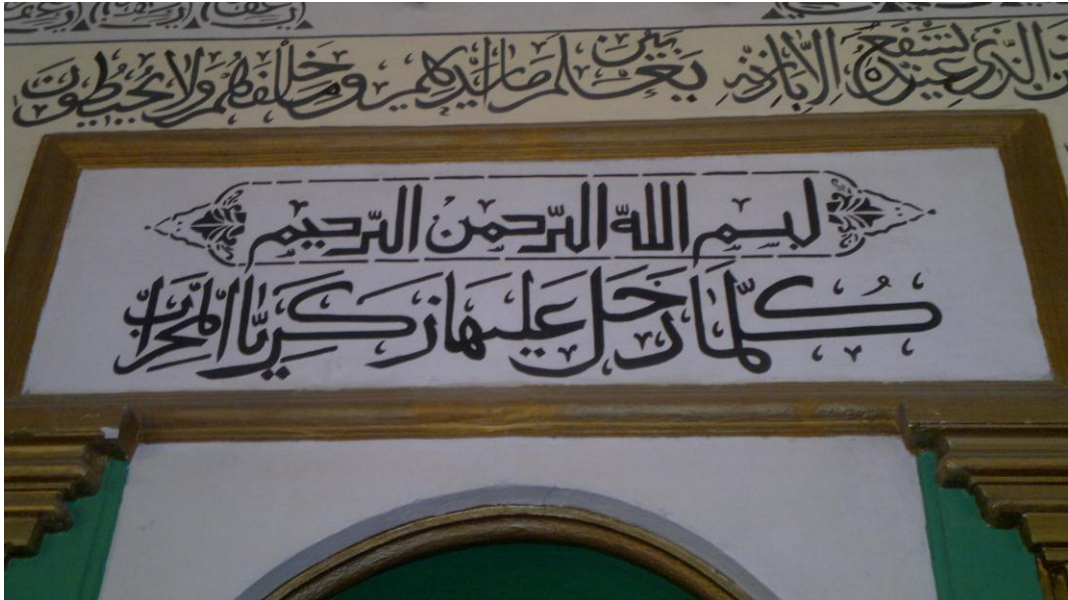 ن الذي يشفع عنده إلا بإذنه يعلم ما بين أيديهم وما خلفهم ولا يحيطون
بسم الله الرحمن الرحيم
كلما دخل عليها زكريا المحراب